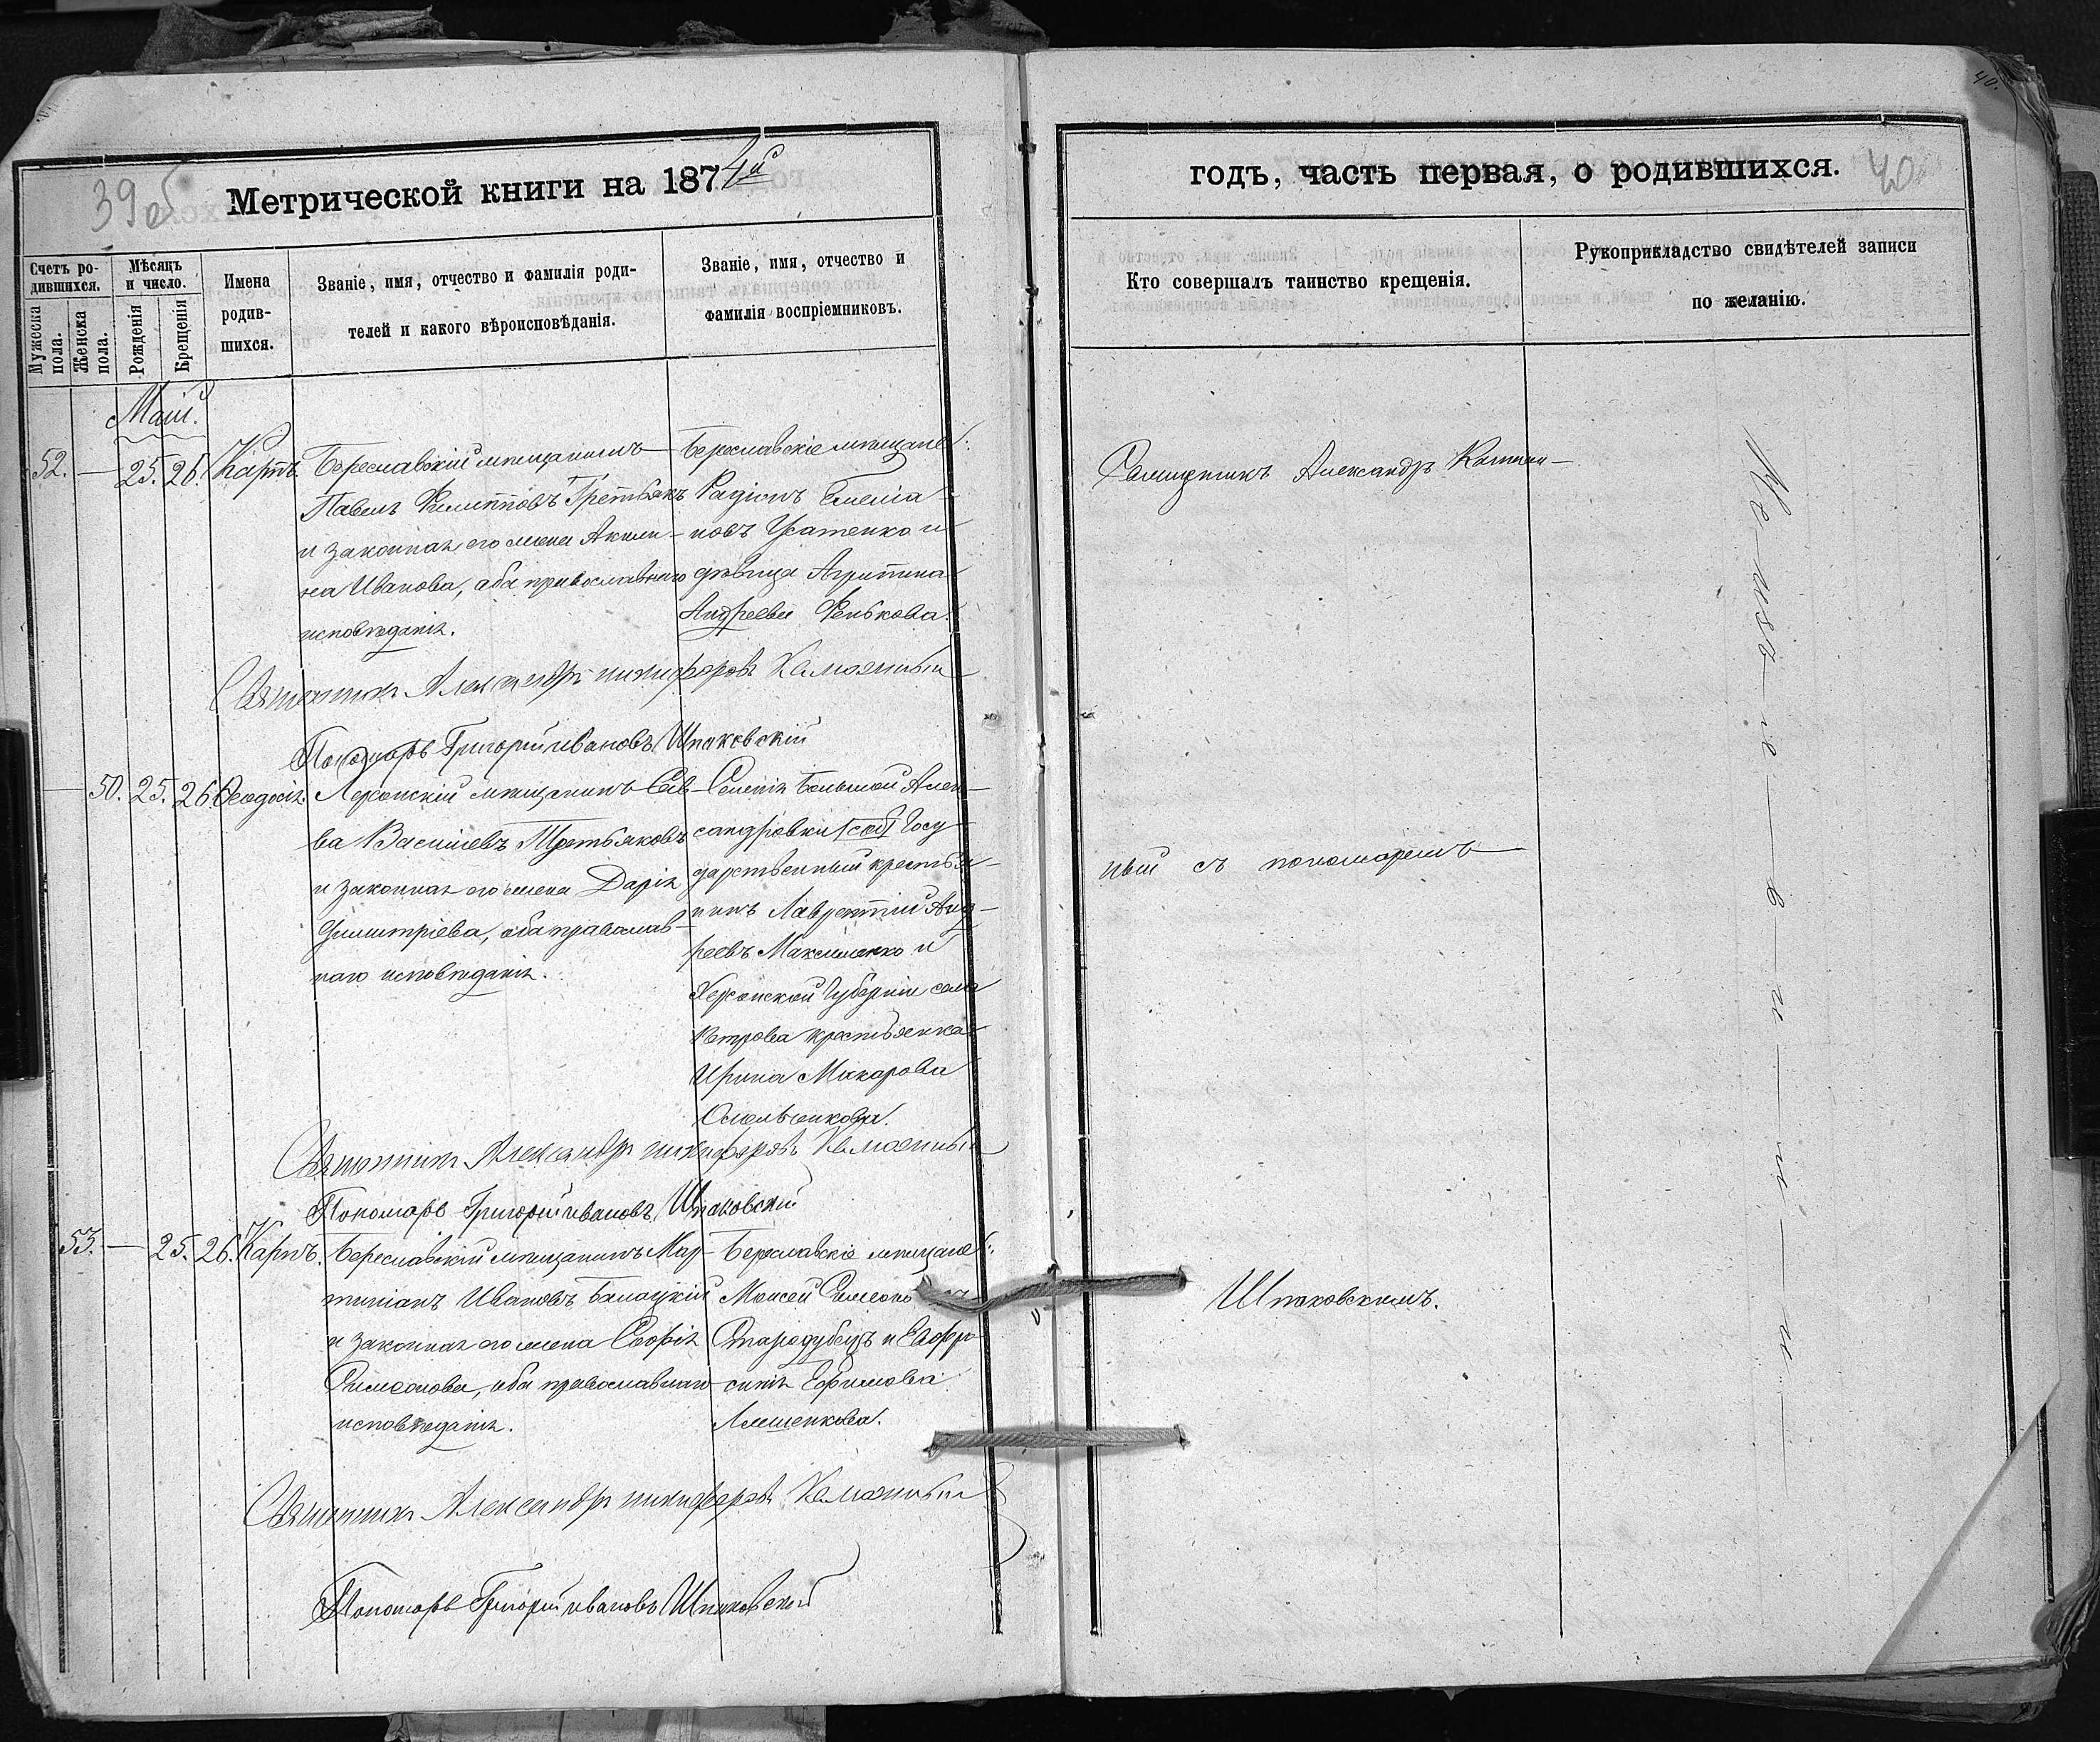 39об
Метрической книги на 1874й
Счетъ родившихся.
Мужеска пола.
Женска пола.
Мѣсяцъ и число.
Рожденія
Крещенія
Имена родившихся.
Званіе, имя, отчество и фамилія роди-
телей и какого вѣроисповѣданія.
Званіе, имя, отчество и
фамилія воспріемниковъ.
Маій.
52. — 25. 26. Карпъ.
Береславскій мѣщанинъ
Павелъ Филипповъ Третьякъ
и законная его жена Акили-
на Иванова, оба православнаго
исповѣданія.
Береславскіе мѣщане:
Радіонъ Емеліа-
новъ Усатенко и
дѣвица Агрипина
Андреева Фенькова.
Священникъ Александръ Никифоровъ
Пономарь Григорій Ивановъ Шпаковскій
— 50. 25. 26. Ѳеодосія.
Херсонскій мѣщанинъ Сав-
ва Васильевъ Третьяковъ
и законная его жена Дарія
Димитріева, оба православ-
наго исповѣданія.
Селенія Большой Алек-
сандровки Госу-
дарственный крестья-
нинъ Лаврентій Анд-
реевъ Максименко и
Херсонской Губерніи села
Петрова крестьянка
Ирина Макарова
Омельченкова.
Священникъ Александръ Никифоровъ
Пономарь Григорій Ивановъ Шпаковскій
53. — 25. 26. Карпъ.
Береславскій мѣщанинъ Мар-
тиніанъ Ивановъ Балацкій
и законная его жена Софія
Симеонова, оба православнаго
исповѣданія.
Береславскіе мѣщане:
Моисей Симеоно
Стародубецъ и Евфро-
синія Ефимова
Лещенкова.
Священникъ Александръ Никифоровъ
Пономарь Григорій Ивановъ Шпаковскій
40.
годъ, часть первая, о родившихся.
40
Кто совершалъ таинство крещенія.
Рукоприкладство свидѣтелей записи
по желанію.
Священникъ Александръ
ный съ пономаремъ
Шпаковскимъ.